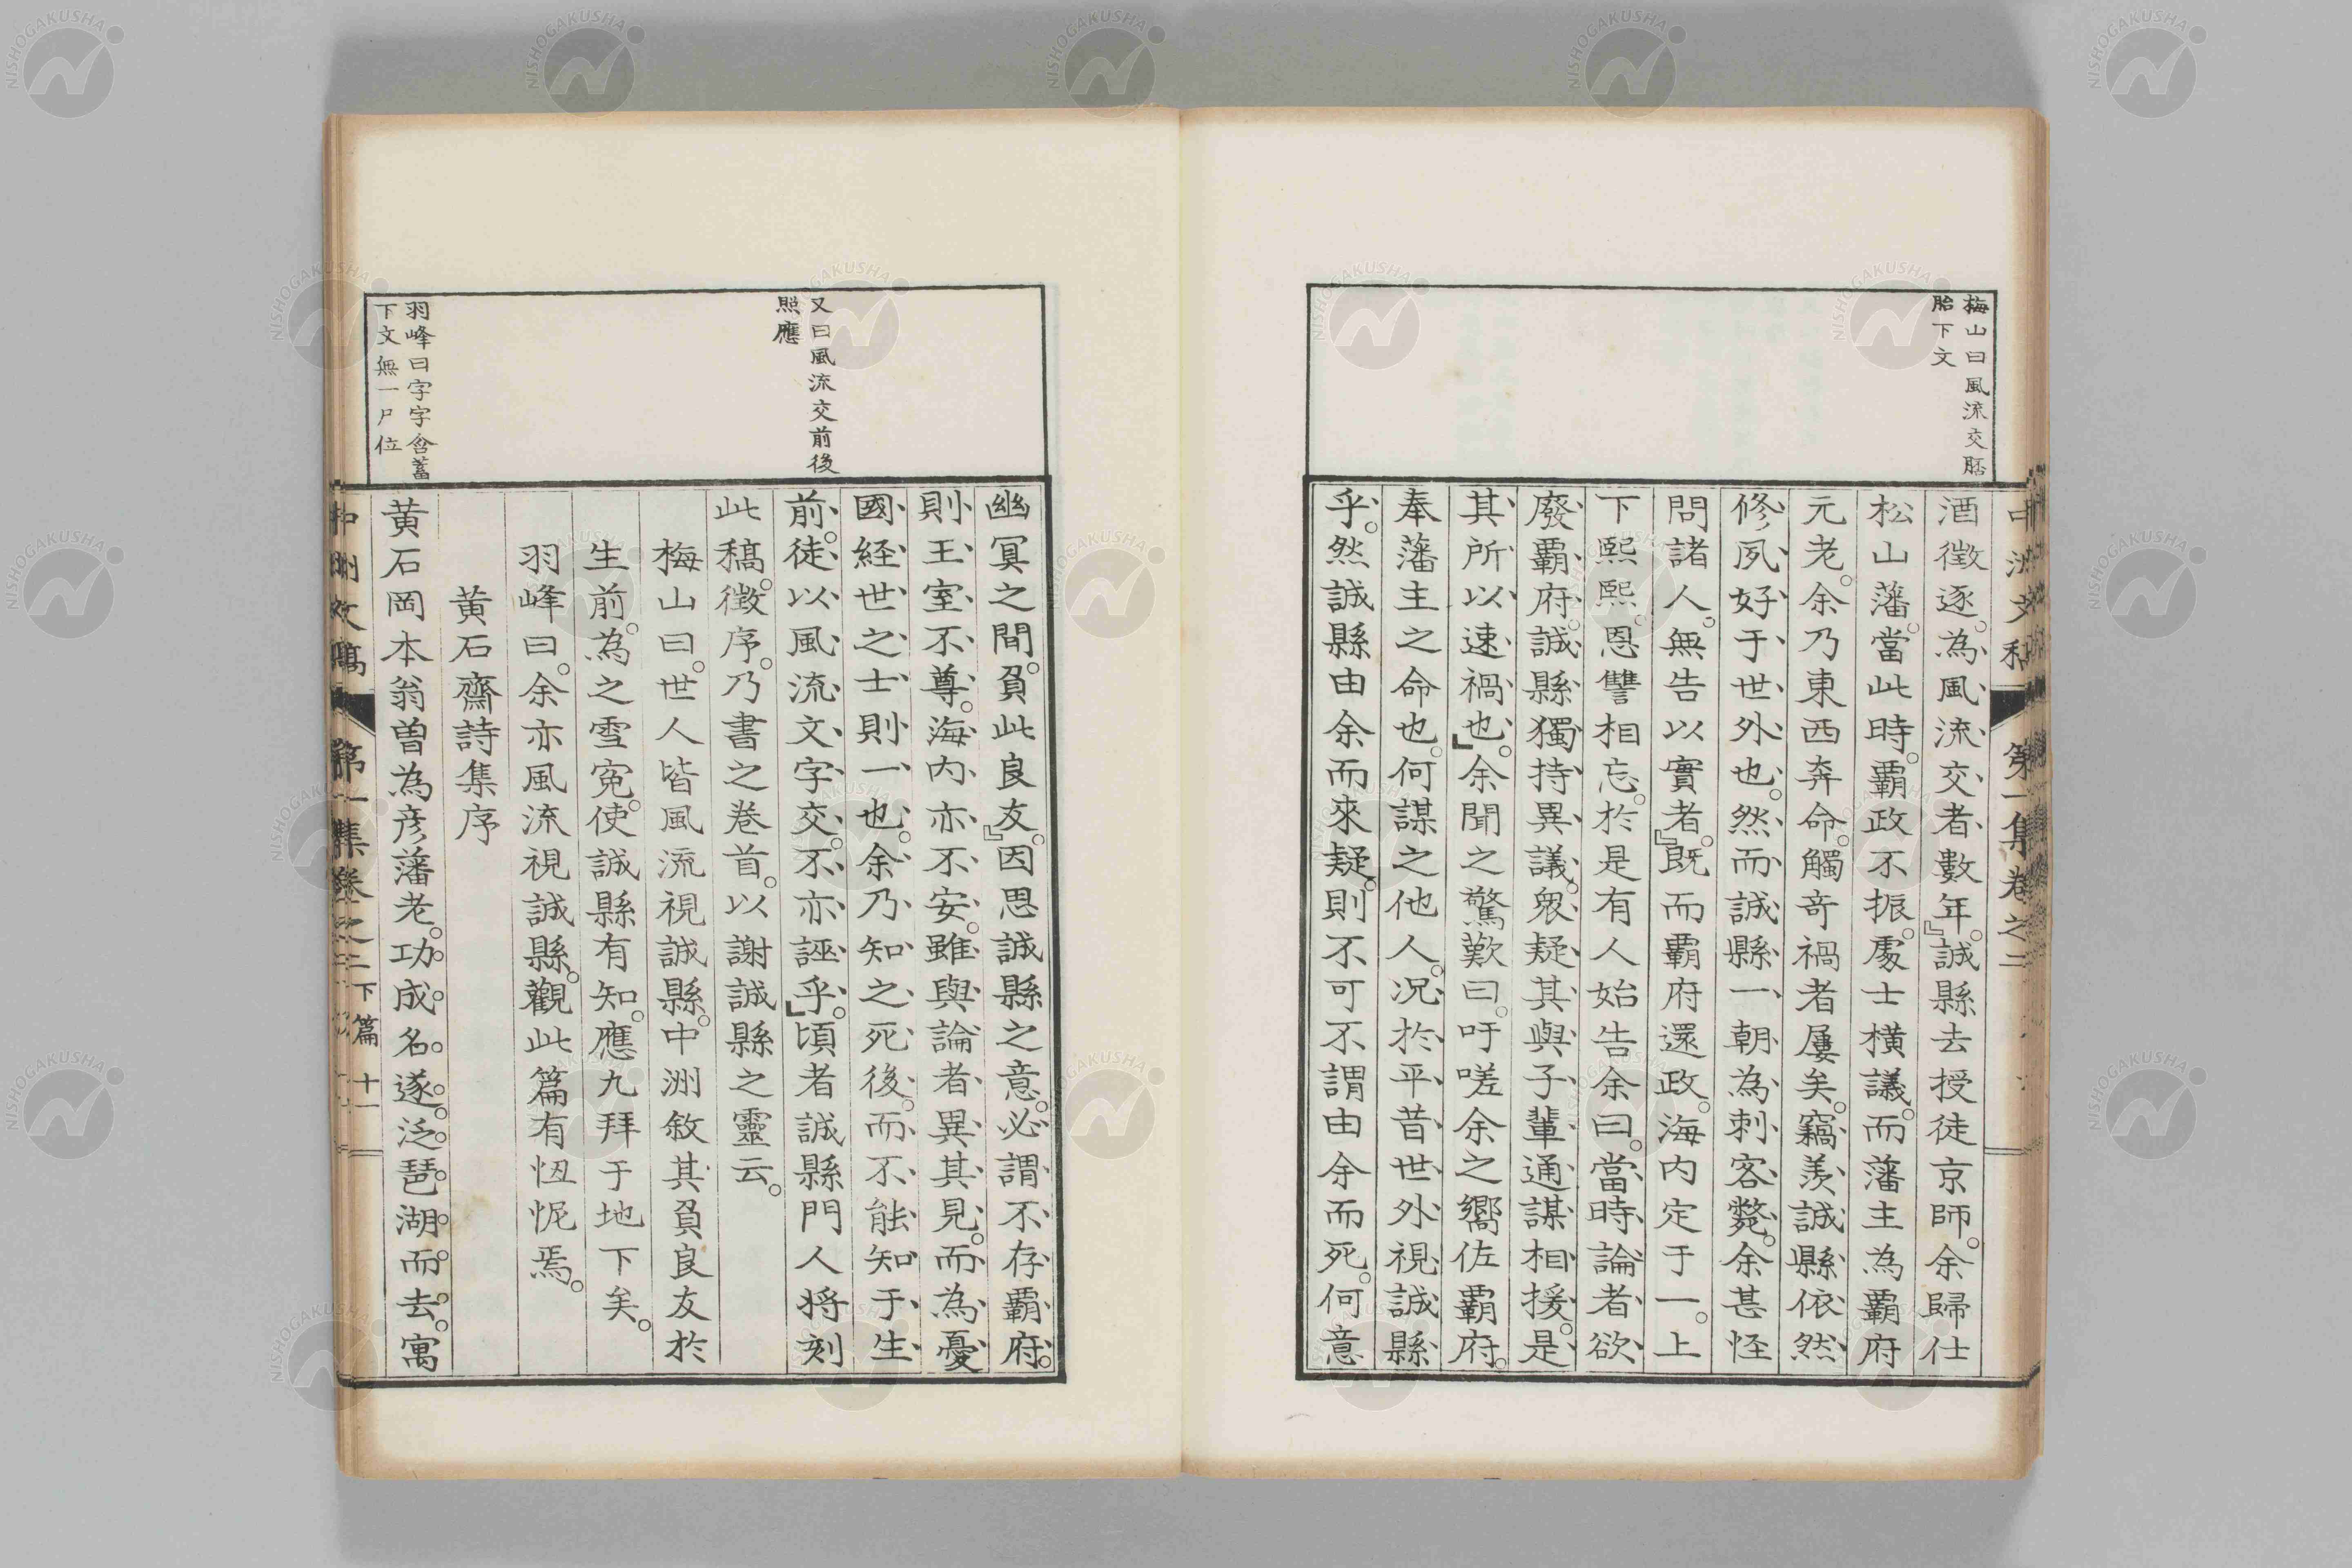 梅山曰風流交胚
胎下文
酒徵逐。為風流交者數年。』誠縣去授徒京師。余歸仕
松山藩。當此時。霸政不振。處士橫議。而藩主為霸府
元老。余乃東西奔命。觸奇禍者屢矣。竊羨誠縣依然
修夙好于世外也。然而誠縣一朝為刺客斃。余甚怪
問諸人。無告以實者。』既而霸府還政。海内定于一。上
下熙熙。恩讐相忘。於是有人始告余曰。當時論者欲
廢霸府。誠縣獨持異議。衆疑其與子輩通謀相援。是
其所以速禍也。』余聞之驚歎曰。吁嗟余之嚮佐霸府。
奉藩主之命也。何謀之他人。况於平昔世外視誠縣
乎。然誠縣由余而來疑。則不可不謂由余而死。何意
又曰風流交前後
照應
羽峰曰字字含蓄
下文無一尸位
幽冥之間。負此良友。』因思誠縣之意。必謂不存霸府。
則王室不尊。海内亦不安。雖與論者異其見。而為憂
國経世之士則一也。余乃知之死後。而不能知于生
前。徒以風流文字交。不亦誣乎。』頃者誠縣門人將刻
此稿。徵序。乃書之巻首。以謝誠縣之靈云。
梅山曰。世人皆風流視誠縣。中洲敘其負良友於
生前。為之雪寃。使誠縣有知。應九拜于地下矣。
羽峰曰。余亦風流視誠縣。觀此篇有忸怩焉。
黄石齋詩集序
黄石岡本翁曽為彦藩老。功成名遂。泛琶湖而去。寓
中洲文稿
第一集卷之二
下篇
十一